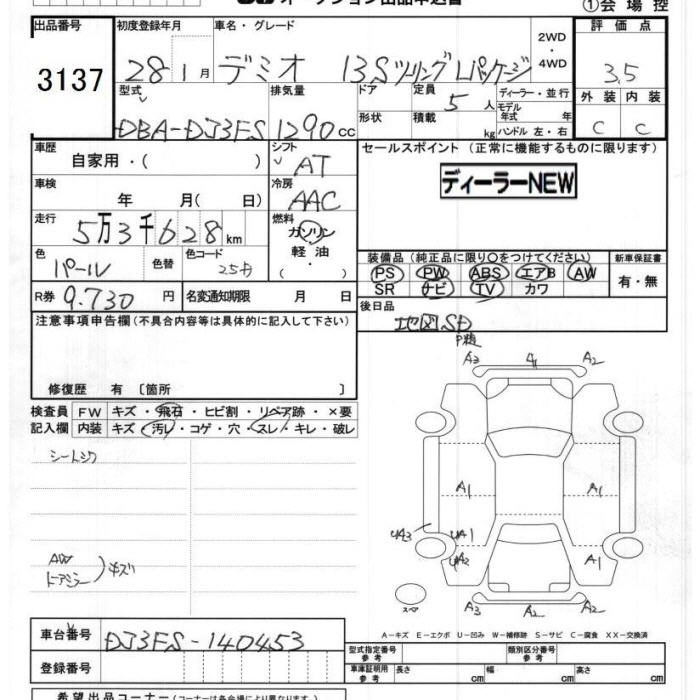 ①会 場 控
出品番号
3137
初度登録年月
28 1 月
車名・グレード
デミオ 13S ツーリング Lパッケージ
2WD
・
4WD
評 価 点
3.5
外 装 内 装
C C
型式
DBA-DJ3FS
排気量
1290 cc
ドア
形状
定員
5 人
積載 kg
ディーラー・並 行
モデル
年式 年
ハンドル 左・右
車歴
自家用・( )
シフト
AT
車検
年 月( 日)
冷房
AAC
走行
5万3千628 km
燃料
ガソリン
軽 油
・
( )
色
パール
色替
色コード
25D
R券
9.730 円
名変通知期限 月 日
セールスポイント (正常に機能するものに限ります)
ディーラーNEW
装備品(純正品に限り○をつけてください)
PS PW ABS エアB AW
SR ナビ TV カワ
新車保証書
有・無
後日品
地図SD
注意事項申告欄(不具合内容等は具体的に記入して下さい)
修復歴 有 〔箇所 〕
検査員
記入欄
FW キズ・飛石・ヒビ割・リペア跡・×要
内装 キズ・汚レ・コゲ・穴・スレ・キレ・破レ
シートシワ
AW
ドアミラー
キズ
A3 A2
A1 A1
UA3 UA1
UA2 A1
A3 A2 A2
スペア
A-キズ E-エクボ U-凹み W-補修跡 S-サビ C-腐食 XX-交換済
車台番号
DJ3FS-140453
登録番号
型式指定番号
参 考
類別区分番号
参 考
車庫証明用
参 考
長さ cm
幅 cm
高さ cm
希 望 出 品 コ ー ナ ー (コーナーは各会場により異なります。)